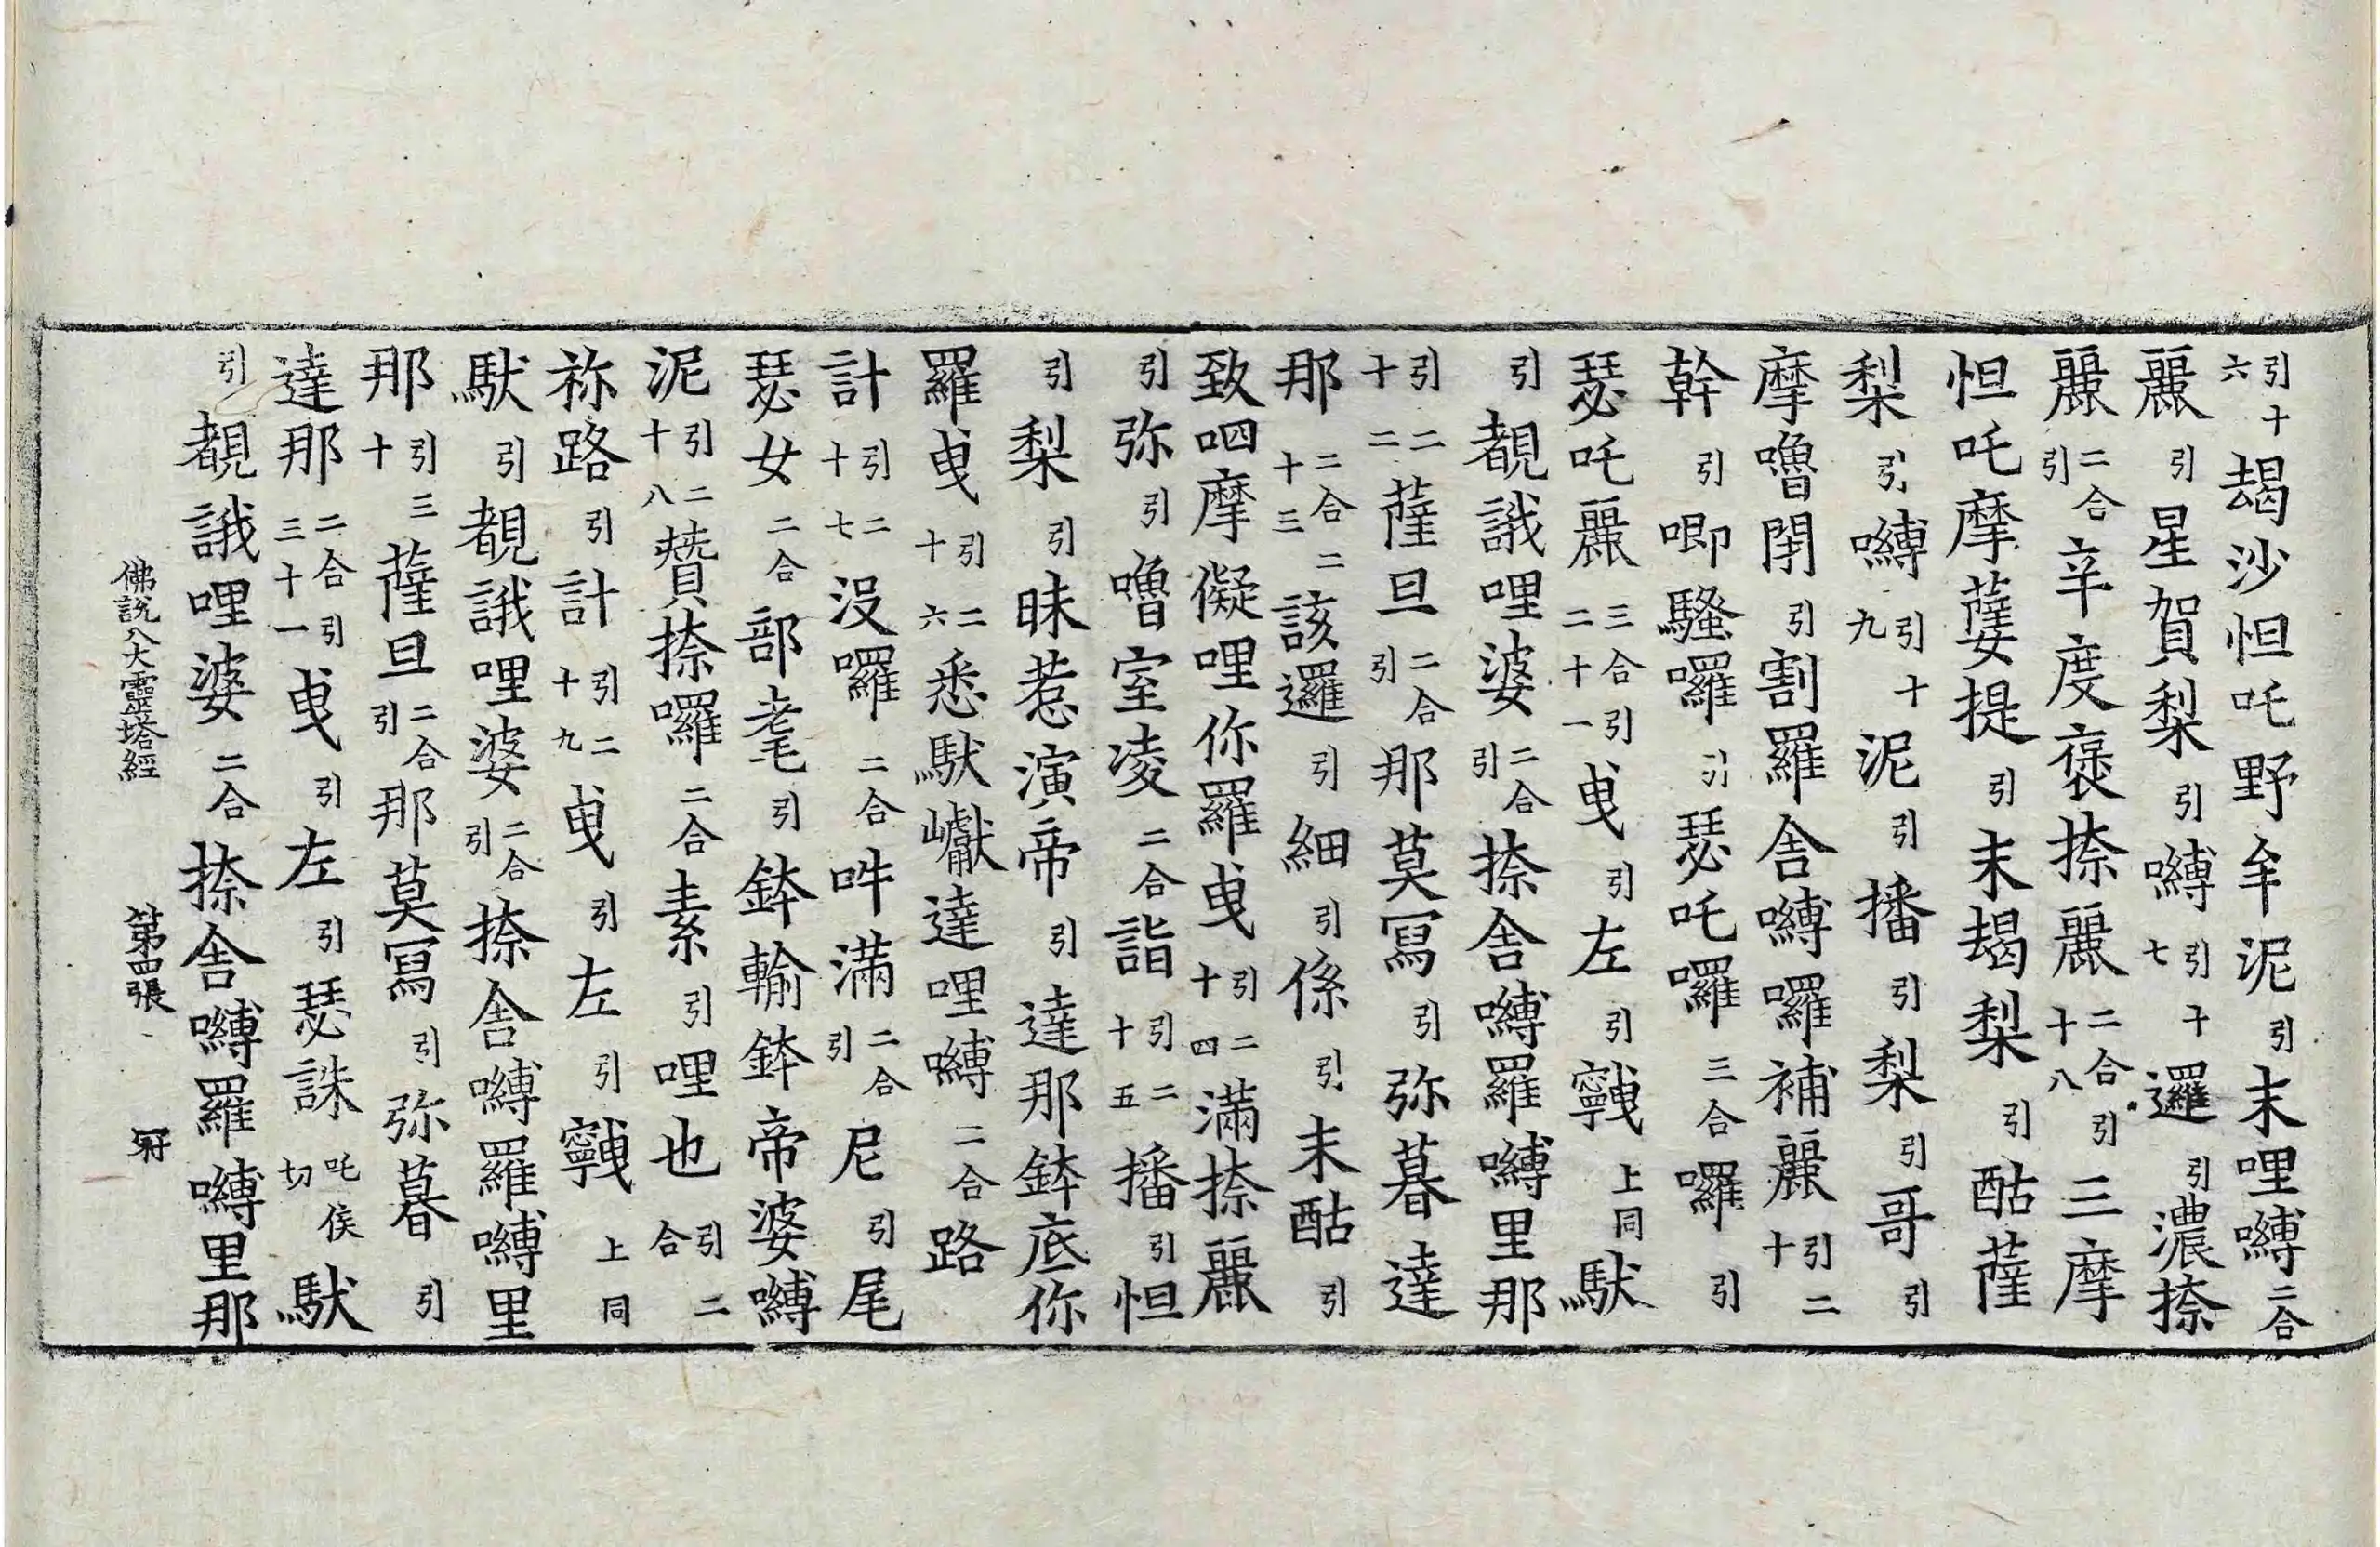 引十六朅沙怛吒野牟泥引末哩嚩二合
麗引星賀梨引嚩引十七邏引濃捺
麗二合引辛度褒捺麗二合引十八三摩
怛吒摩薩提引末朅梨引酤薩
梨引嚩引十九泥引播引梨引哥引
摩嚕閉引割羅舍嚩囉補麗引二十
幹引唧騷囉引瑟吒囉三合囉引
瑟吒麗三合引二十一曳引左引𩕳上同䭾
引覩誐哩婆二合引捺舍嚩羅嚩里那
引二十二薩旦二合引那莫冩引弥暮達
那二合二十三該邏引細引係引末酤引
致呬摩儗哩你羅曳引二十四滿捺麗
引弥引嚕室凌二合詣引二十五播引怛
引梨引昧惹演帝引達那鉢底你
羅曳引二十六悉䭾巘達哩嚩二合路
計引二十七沒囉二合吽滿二合引尼引尾
瑟女二合部耄引鉢輸鉢帝婆嚩
泥引二十八贊捺囉二合素引哩也引二合
祢路引計引二十九曳引左引𩕳上同
䭾引覩誐哩婆二合引捺舍嚩羅嚩里
那引三十薩旦二合引那莫冩引弥暮引
達那二合引三十一曳引左引瑟誅吒侯切䭾
引覩誐哩婆二合捺舍嚩羅嚩里那
佛說八大靈塔經 第四張 冠